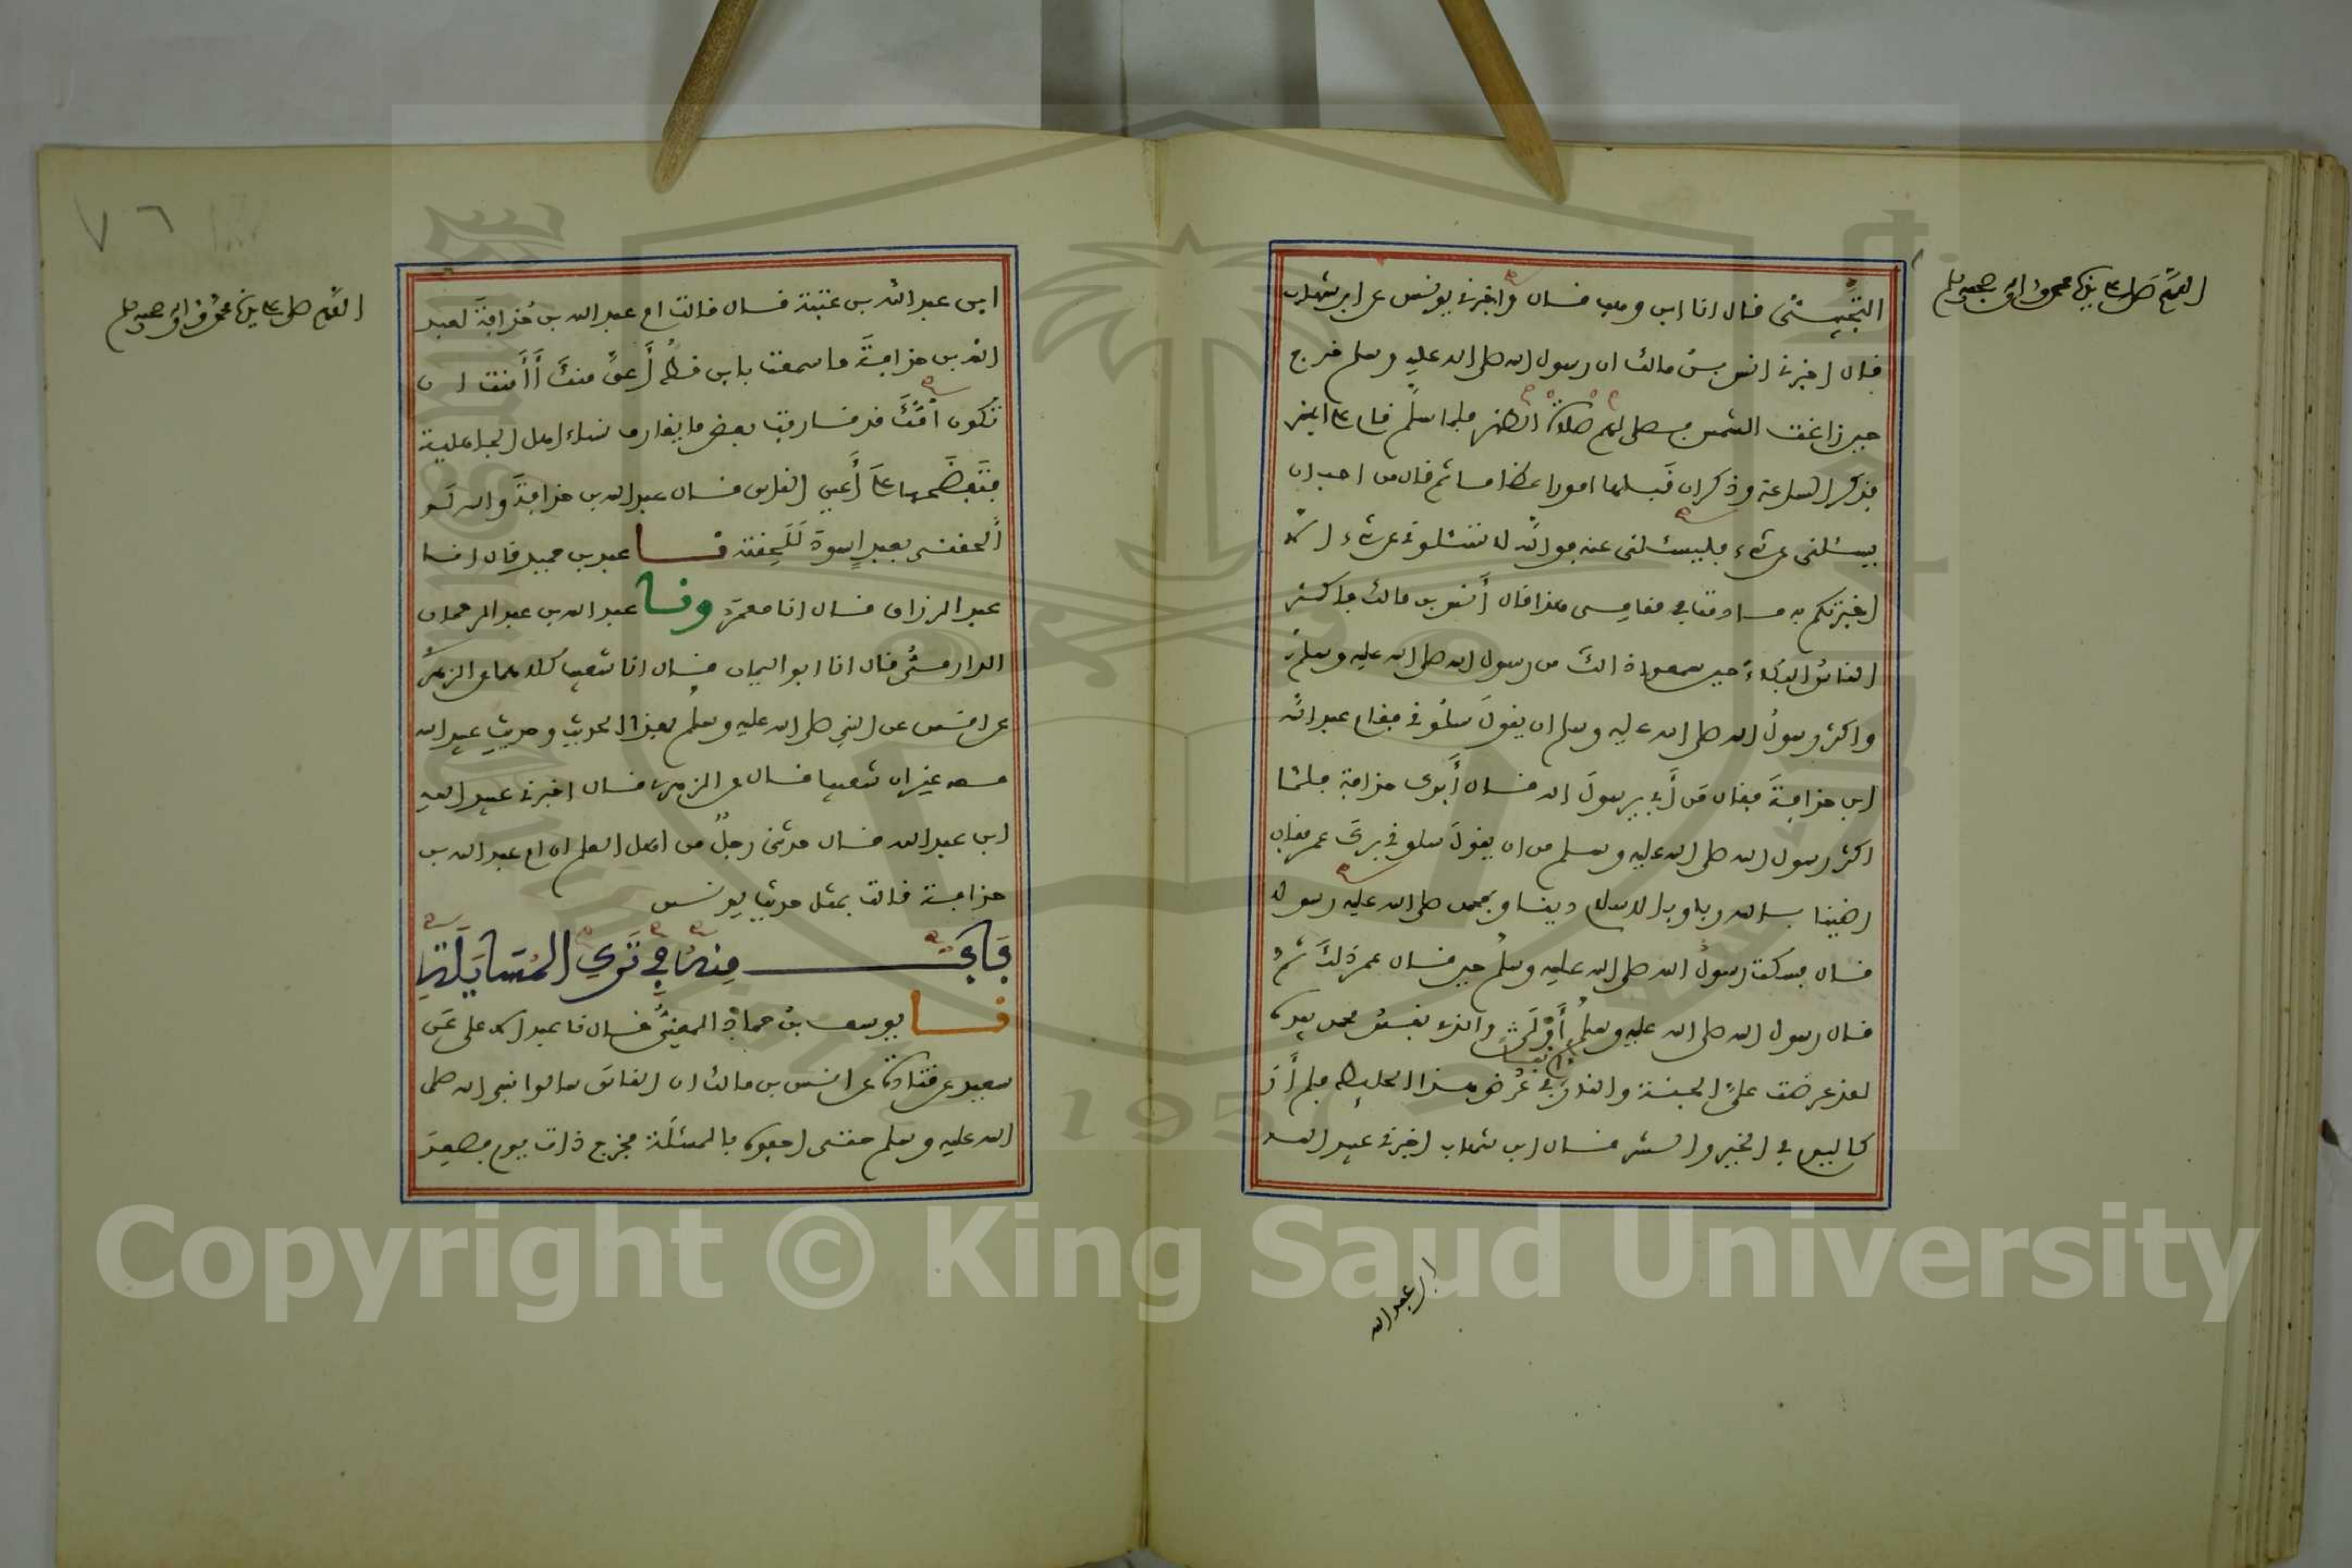 اللهم صل على سيدنا محمد وآله وصحبه وسلم
التجيبي قال انا ابن وهب قال واخبرني يونس عن ابن شهاب
قال اخبرني انس بن مالك ان رسول الله صلى الله عليه وسلم خرج
حين زاغت الشمس فصلى لهم صلاة الظهر فلما سلم قام على المنبر
فذكر الساعة وذكر ان قبلها امورا عظاما ثم قال من احب ان
يسئلني عن شيء فليسئلني عنه فوالله لا تسئلوني عن شيء الا
اخبرتكم به ما دمت في مقامي هذا قال أنس بن مالك فاكثر
الناس البكاء حين سمعوا ذالك من رسول الله صلى الله عليه وسلم
واكثر رسول الله صلى الله عليه وسلم ان يقول سلوني فقام عبد الله
ابن حذافة فقال من أبي يرسول الله قال أبوك حذافة فلما
اكثر رسول الله صلى الله عليه وسلم من ان يقول سلوني برك عمر فقال
رضينا بالله ربا وبالاسلام دينا وبمحمد صلى الله عليه رسولا
قال فسكت رسول الله صلى الله عليه وسلم حين قال عمر ذلك ثم
قال رسول الله صلى الله عليه وسلم أولى والذي نفس محمد بيده
لقد عرضت علي الجنة والنار آنفا في عرض هذا الحايط فلم أر
كاليوم في الخير والشر قال ابن شهاب اخبرني عبيد الله
ابن عبد الله
٧٦
اللهم صل على سيدنا محمد وآله وصحبه وسلم
ابن عبد الله بن عتبة قال قالت ام عبد الله بن حذافة لعبد
الله بن حذافة ما سمعت بابن قط أعق منك أأمنت ان
تكون أمك قد قارفت بعض ما يقارف نساء اهل الجاهلية
فتفضحها على أعين الناس قال عبد الله بن حذافة والله لو
ألحقني بعبد اسود للحقته نا عبد بن حميد قال انا
عبد الرزاق قال انا معمر ونا عبد الله بن عبد الرحمان
الدارمي قال انا ابو اليمان قال انا شعيب كلاهما عن الزهري
عن انس عن النبي صلى الله عليه وسلم بهذا الحديث وحديث عبيد الله
معه غير ان شعيبا قال عن الزهري قال اخبرني عبيد الله
ابن عبد الله قال حدثني رجل من اهل العلم ان ام عبد الله بن
حذافة قالت بمثل حديث يونس
باب منه في ترك المسايلة
نا يوسف بن حماد المعني قال نا عبد الاعلى عن
سعيد عن قتادة عن انس بن مالك ان الناس سالوا نبي الله صلى
الله عليه وسلم حتى احفوه بالمسئلة فخرج ذات يوم فصعد
1957
Copyright © King Saud University